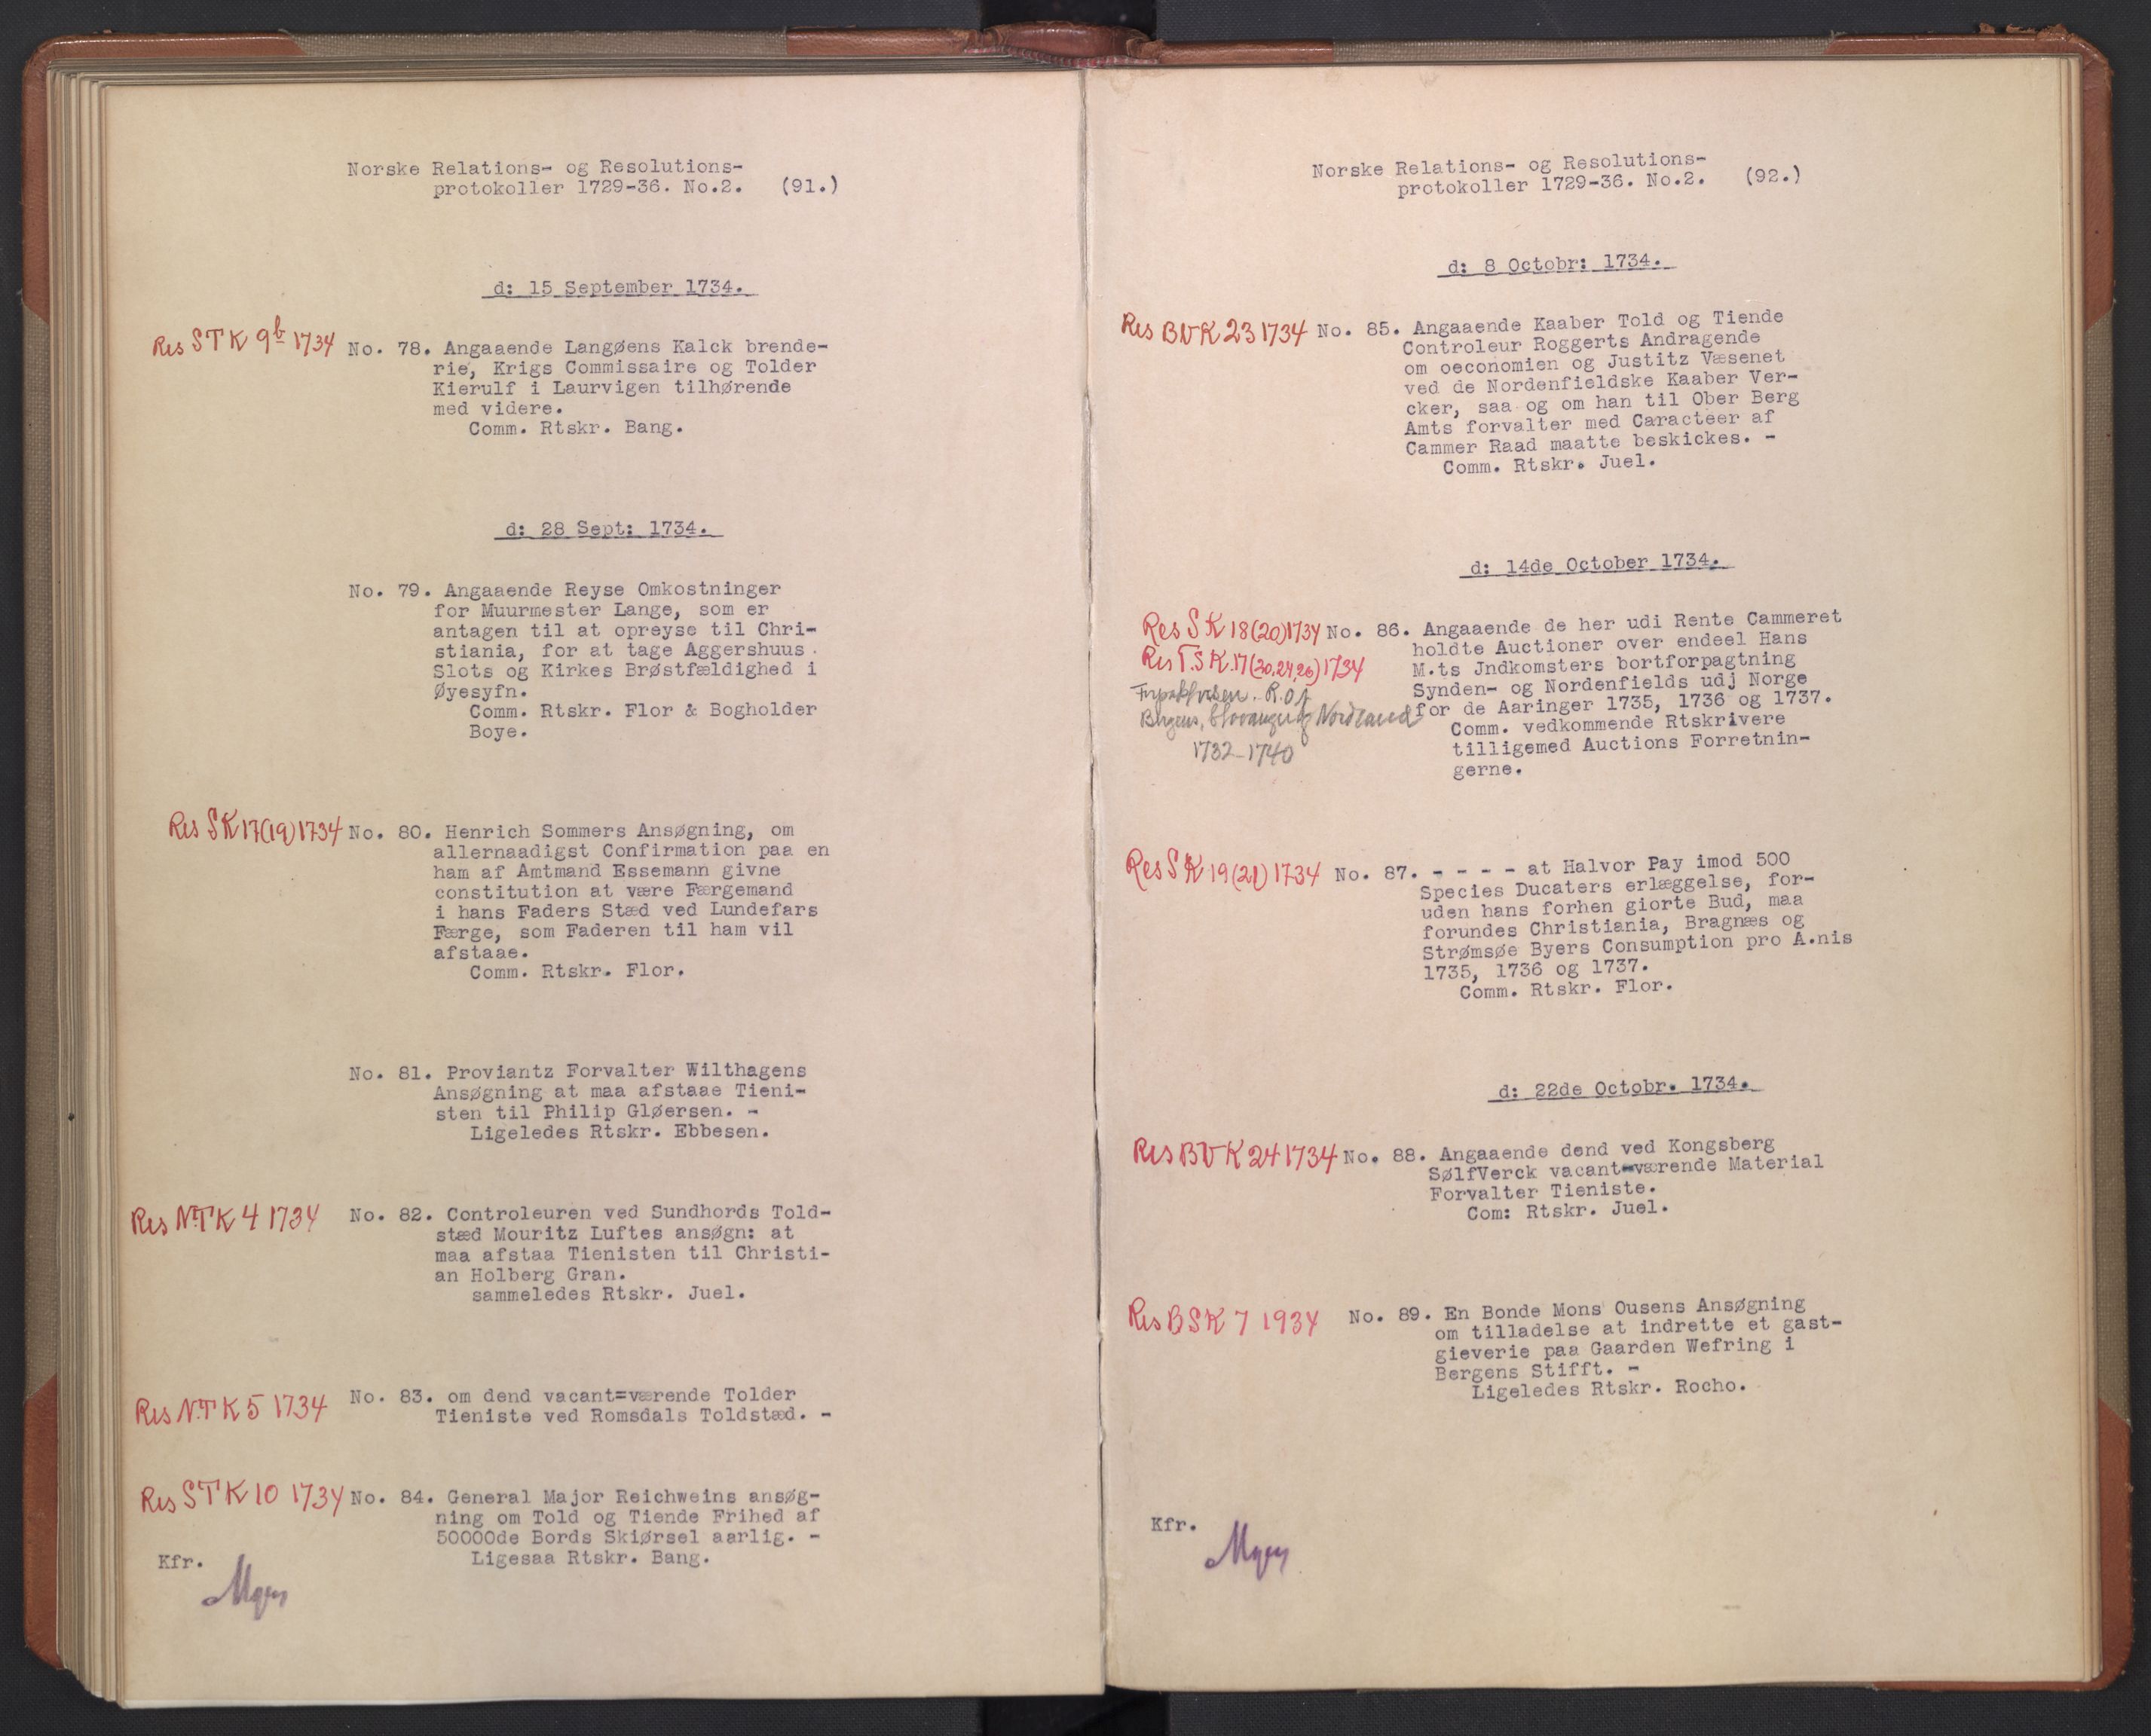 Norske Relations- og Resolutions-
protokoller 1729-36. No.2. (91.)
d: 15 September 1734.
Res STK 9b 1734 No. 78. Angaaende Langøens Kalck brende-
rie, Krigs Commissaire og Tolder
Kierulf i Laurvigen tilhørende
med videre.
Comm. Rtskr. Bang.
d: 28 Sept: 1734.
No. 79. Angaaende Reyse Omkostninger
for Muurmester Lange, som er
antagen til at opreyse til Chri-
stiania, for at tage Aggershuus
Slots og Kirkes Brøstfældighed i
Øyesyfn.
Comm. Rtskr. Flor & Bogholder
Boye.
Res SK 17(19) 1734 No. 80. Henrich Sommers Ansøgning, om
allernaadigst Confirmation paa en
ham af Amtmand Essemann givne
constitution at være Færgemand
i hans Faders Stæd ved Lundefars
Færge, som Faderen til ham vil
afstaae.
Comm. Rtskr. Flor.
No. 81. Proviantz Forvalter Wilthagens
Ansøgning at maa afstaae Tieni-
sten til Philip Gløersen. -
Ligeledes Rtskr. Ebbesen.
Res N.T K 4 1734 No. 82. Controleuren ved Sundhords Told-
stæd Mouritz Luftes ansøgn: at
maa afstaa Tienisten til Christi-
an Holberg Gran.
sammeledes Rtskr. Juel.
Res N.T K 5 1734 No. 83. om dend vacant=værende Tolder
Tieniste ved Romsdals Toldstæd. -
Res STK 10 1734 No. 84. General Major Reichweins ansøg-
ning om Told og Tiende Frihed af
50000de Bords Skiørsel aarlig. -
Ligesaa Rtskr. Bang.
Kfr.
Norske Relations- og Resolutions-
protokoller 1729-36. No.2. (92.)
d: 8 Octobr: 1734.
Res BVK 23 1734 No. 85. Angaaende Kaaber Told og Tiende
Controleur Roggerts Andragende
om oeconomien og Justitz Væsenet
ved de Nordenfieldske Kaaber Ver-
cker, saa og om han til Ober Berg
Amts forvalter med Caracteer af
Cammer Raad maatte beskickes. -
Comm. Rtskr. Juel.
d: 14de October 1734.
Res SK 18(20) 1734 No. 86. Angaaende de her udi Rente Cammeret
holdte Auctioner over endeel Hans
Res T.S K. 17(20,24,26) 1734 M.ts Jndkomsters bortforpagtning
Synden- og Nordenfields udj Norge
Bergens, Stavanger og Nordland for de Aaringer 1735, 1736 og 1737.
Comm. vedkommende Rtskrivere
1732-1740 tilligemed Auctions Forretnin-
gerne.
Res SK 19(21) 1734 No. 87. - - - - at Halvor Pay imod 500
Species Ducaters erlæggelse, for-
uden hans forhen giorte Bud, maa
forundes Christiania, Bragnæs og
Strømsøe Byers Consumption pro A.nis
1735, 1736 og 1737.
Comm. Rtskr. Flor.
d: 22de Octobr. 1734.
Res BVK 24 1734 No. 88. Angaaende dend ved Kongsberg
SølfVerck vacant=værende Material
Forvalter Tieniste.
Com: Rtskr. Juel.
Res BSK 7 1934 No. 89. En Bonde Mons Ousens Ansøgning
om tilladelse at indrette et gast-
gieverie paa Gaarden Wefring i
Bergens Stifft. -
Ligeledes Rtskr. Rocho.
Kfr.